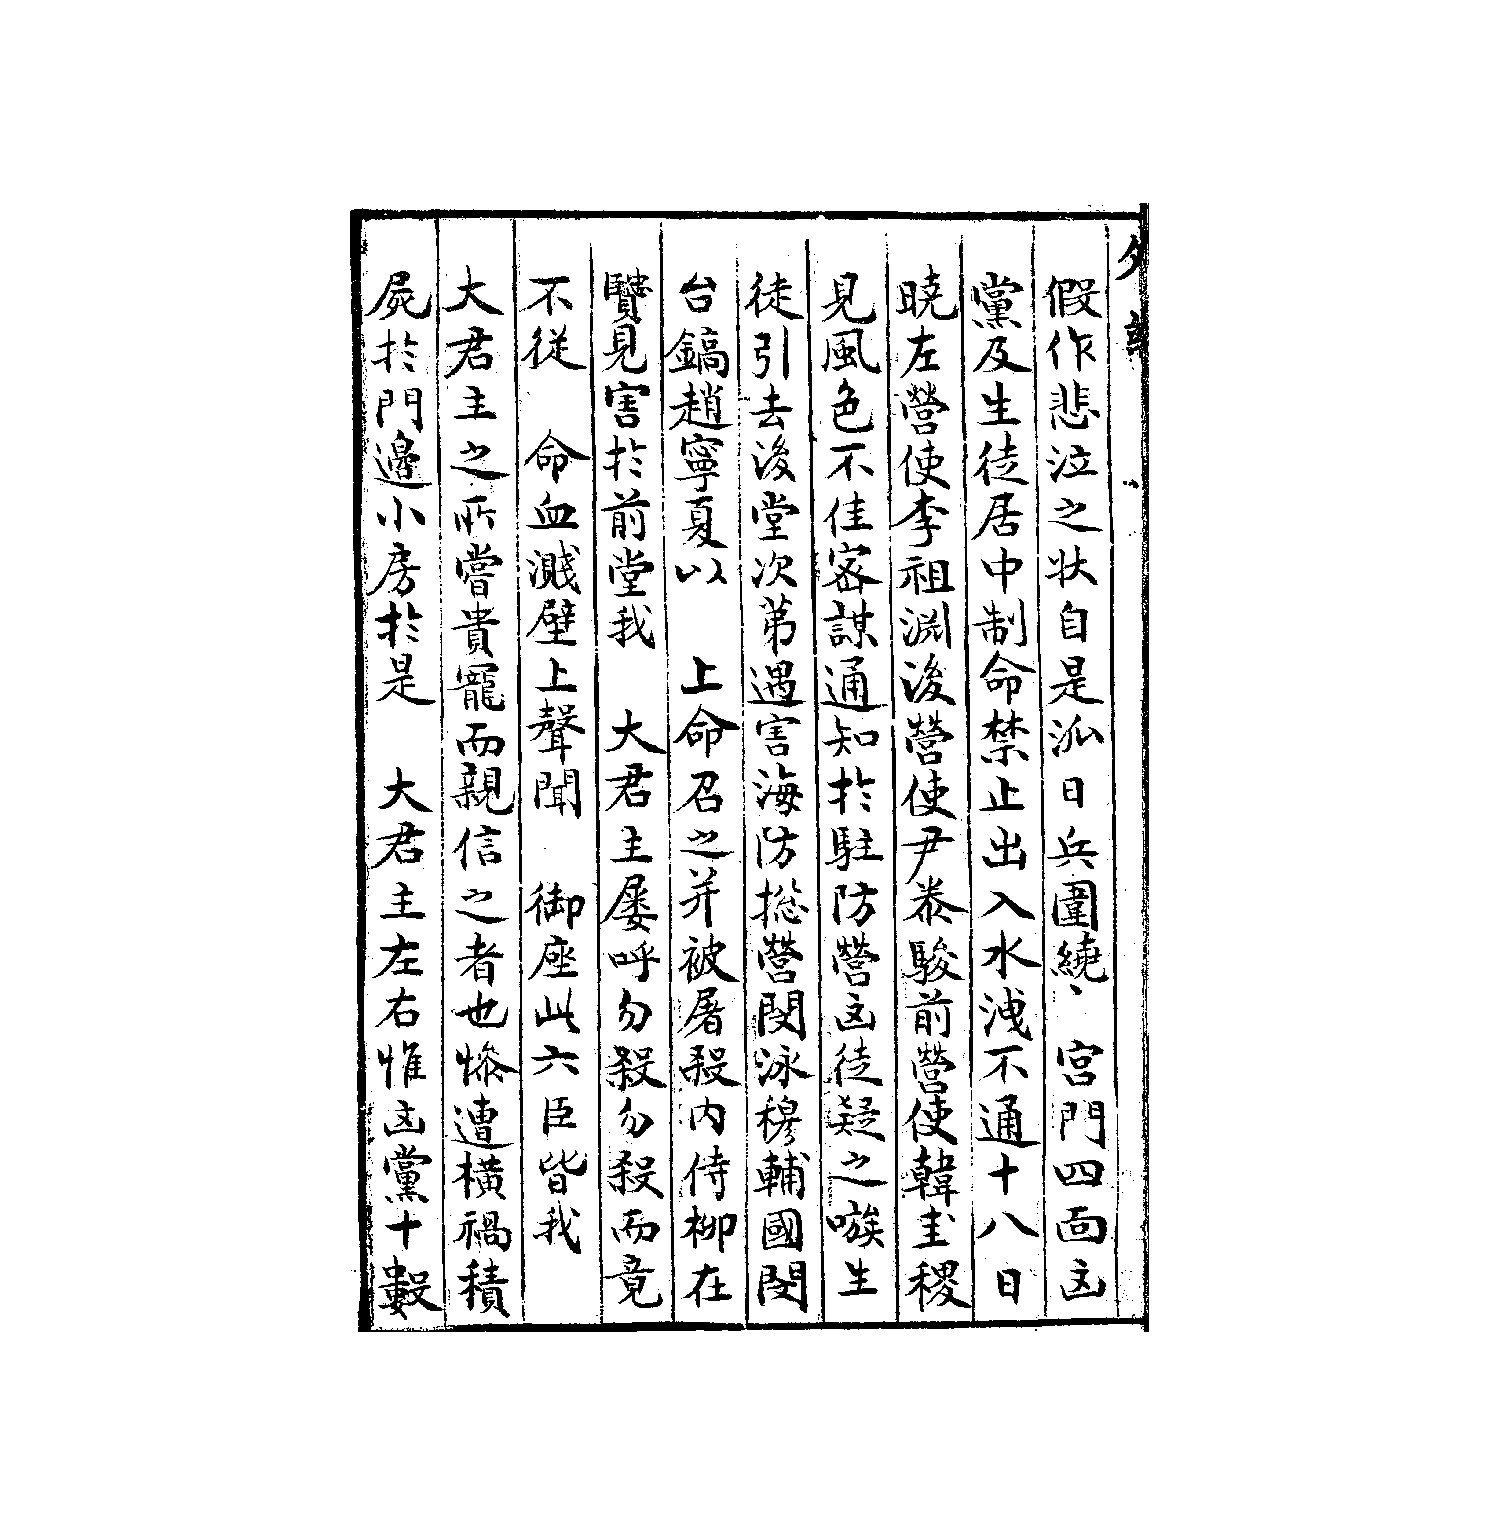 假作悲泣之状自是派日兵圍繞宮門四面凶
黨及生徒居中制命禁止出入水洩不通十八日
曉左營使李祖淵後營使尹泰駿前營使韓圭稷
見風色不佳密謀通知於駐防營凶徒疑之嗾生
徒引去後堂次第遇害海防捴營閔泳穆輔國閔
台鎬趙寧夏以　上命召之并被屠殺內侍柳在
賢見害於前堂我　大君主屡呼勿殺勿殺而竟
不從　命血濺壁上聲聞　御座此六臣皆我
大君主之所嘗貴寵而親信之者也慘遭橫禍積
屍於門邊小房於是　大君主左右惟凶黨十數